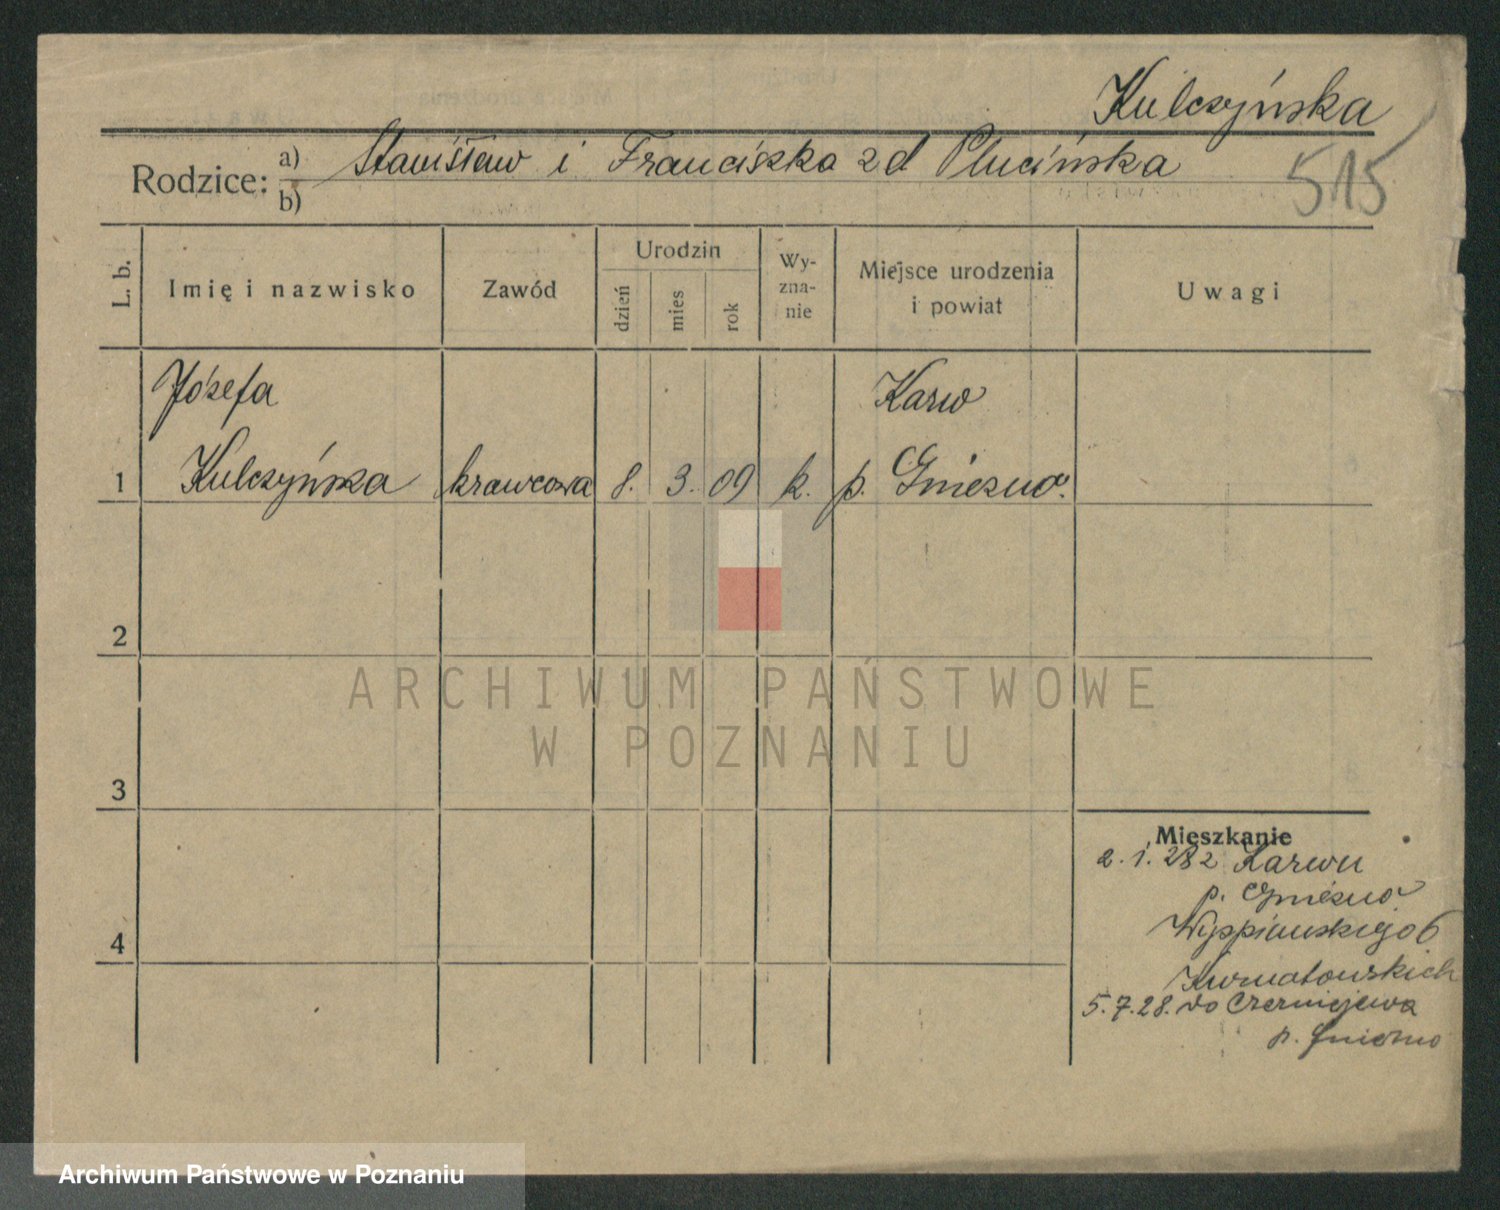 Kulczyńska
515
Rodzice: a) Stanisław i Franciszka zd Plucińska
b)
L. b.
Imię i nazwisko
Zawód
Urodzin
dzień
mies
rok
Wy-
zna-
nie
Miejsce urodzenia
i powiat
Uwagi
Józefa
Karw
1 Kulczyńska krawcowa 8. 3. 09 k. p. Gniezno.
2
3
4
ARCHIWUM PAŃSTWOWE
W POZNANIU
Mieszkanie
2. 1. 282 Karwu
p. Gniezno
Wyspiańskiego 6
Kurnatowskich
5.7.28. do Czerniejewa
p. Gniezno
Archiwum Państwowe w Poznaniu